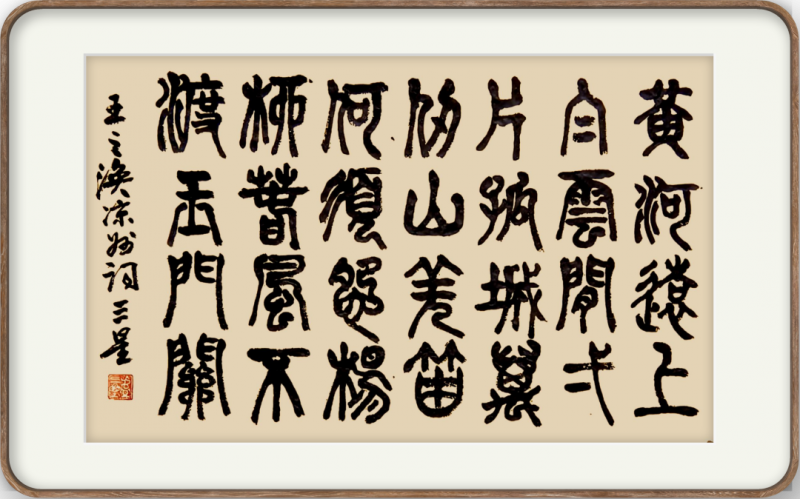 黄河遠上
白雲間弌
片孤城萬
仞山羌笛
何須怨楊
柳春風不
渡玉門關
王之渙凉州詞三星